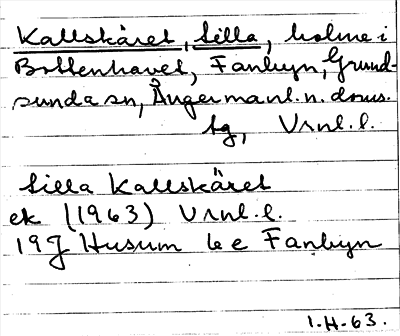 Kallskäret, Lilla, holme i
Bottenhavet, Fanbyn, Grund-
sunda sn, Ångermanl. n. doms.
tg, Vrnl. l.
Lilla Kallskäret
ek (1963) Vrnl. l.
19J Husum 6 e Fanbyn
1-H-63.